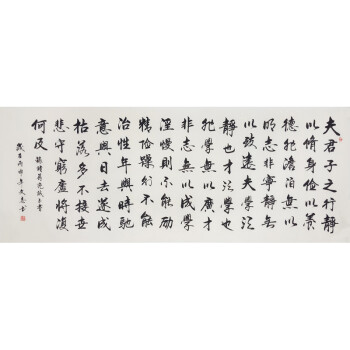 夫君子之行靜
以脩身儉以養
德非澹泊無以
明志非寧靜無
以致遠夫學須
靜也才須學也
非學無以廣才
非志無以成學
淫慢則不能勵
精險躁則不能
治性年與時馳
意與日去遂成
枯落多不接世
悲守窮廬將復
何及
諸葛亮誡子書
歲在丙申年文志書